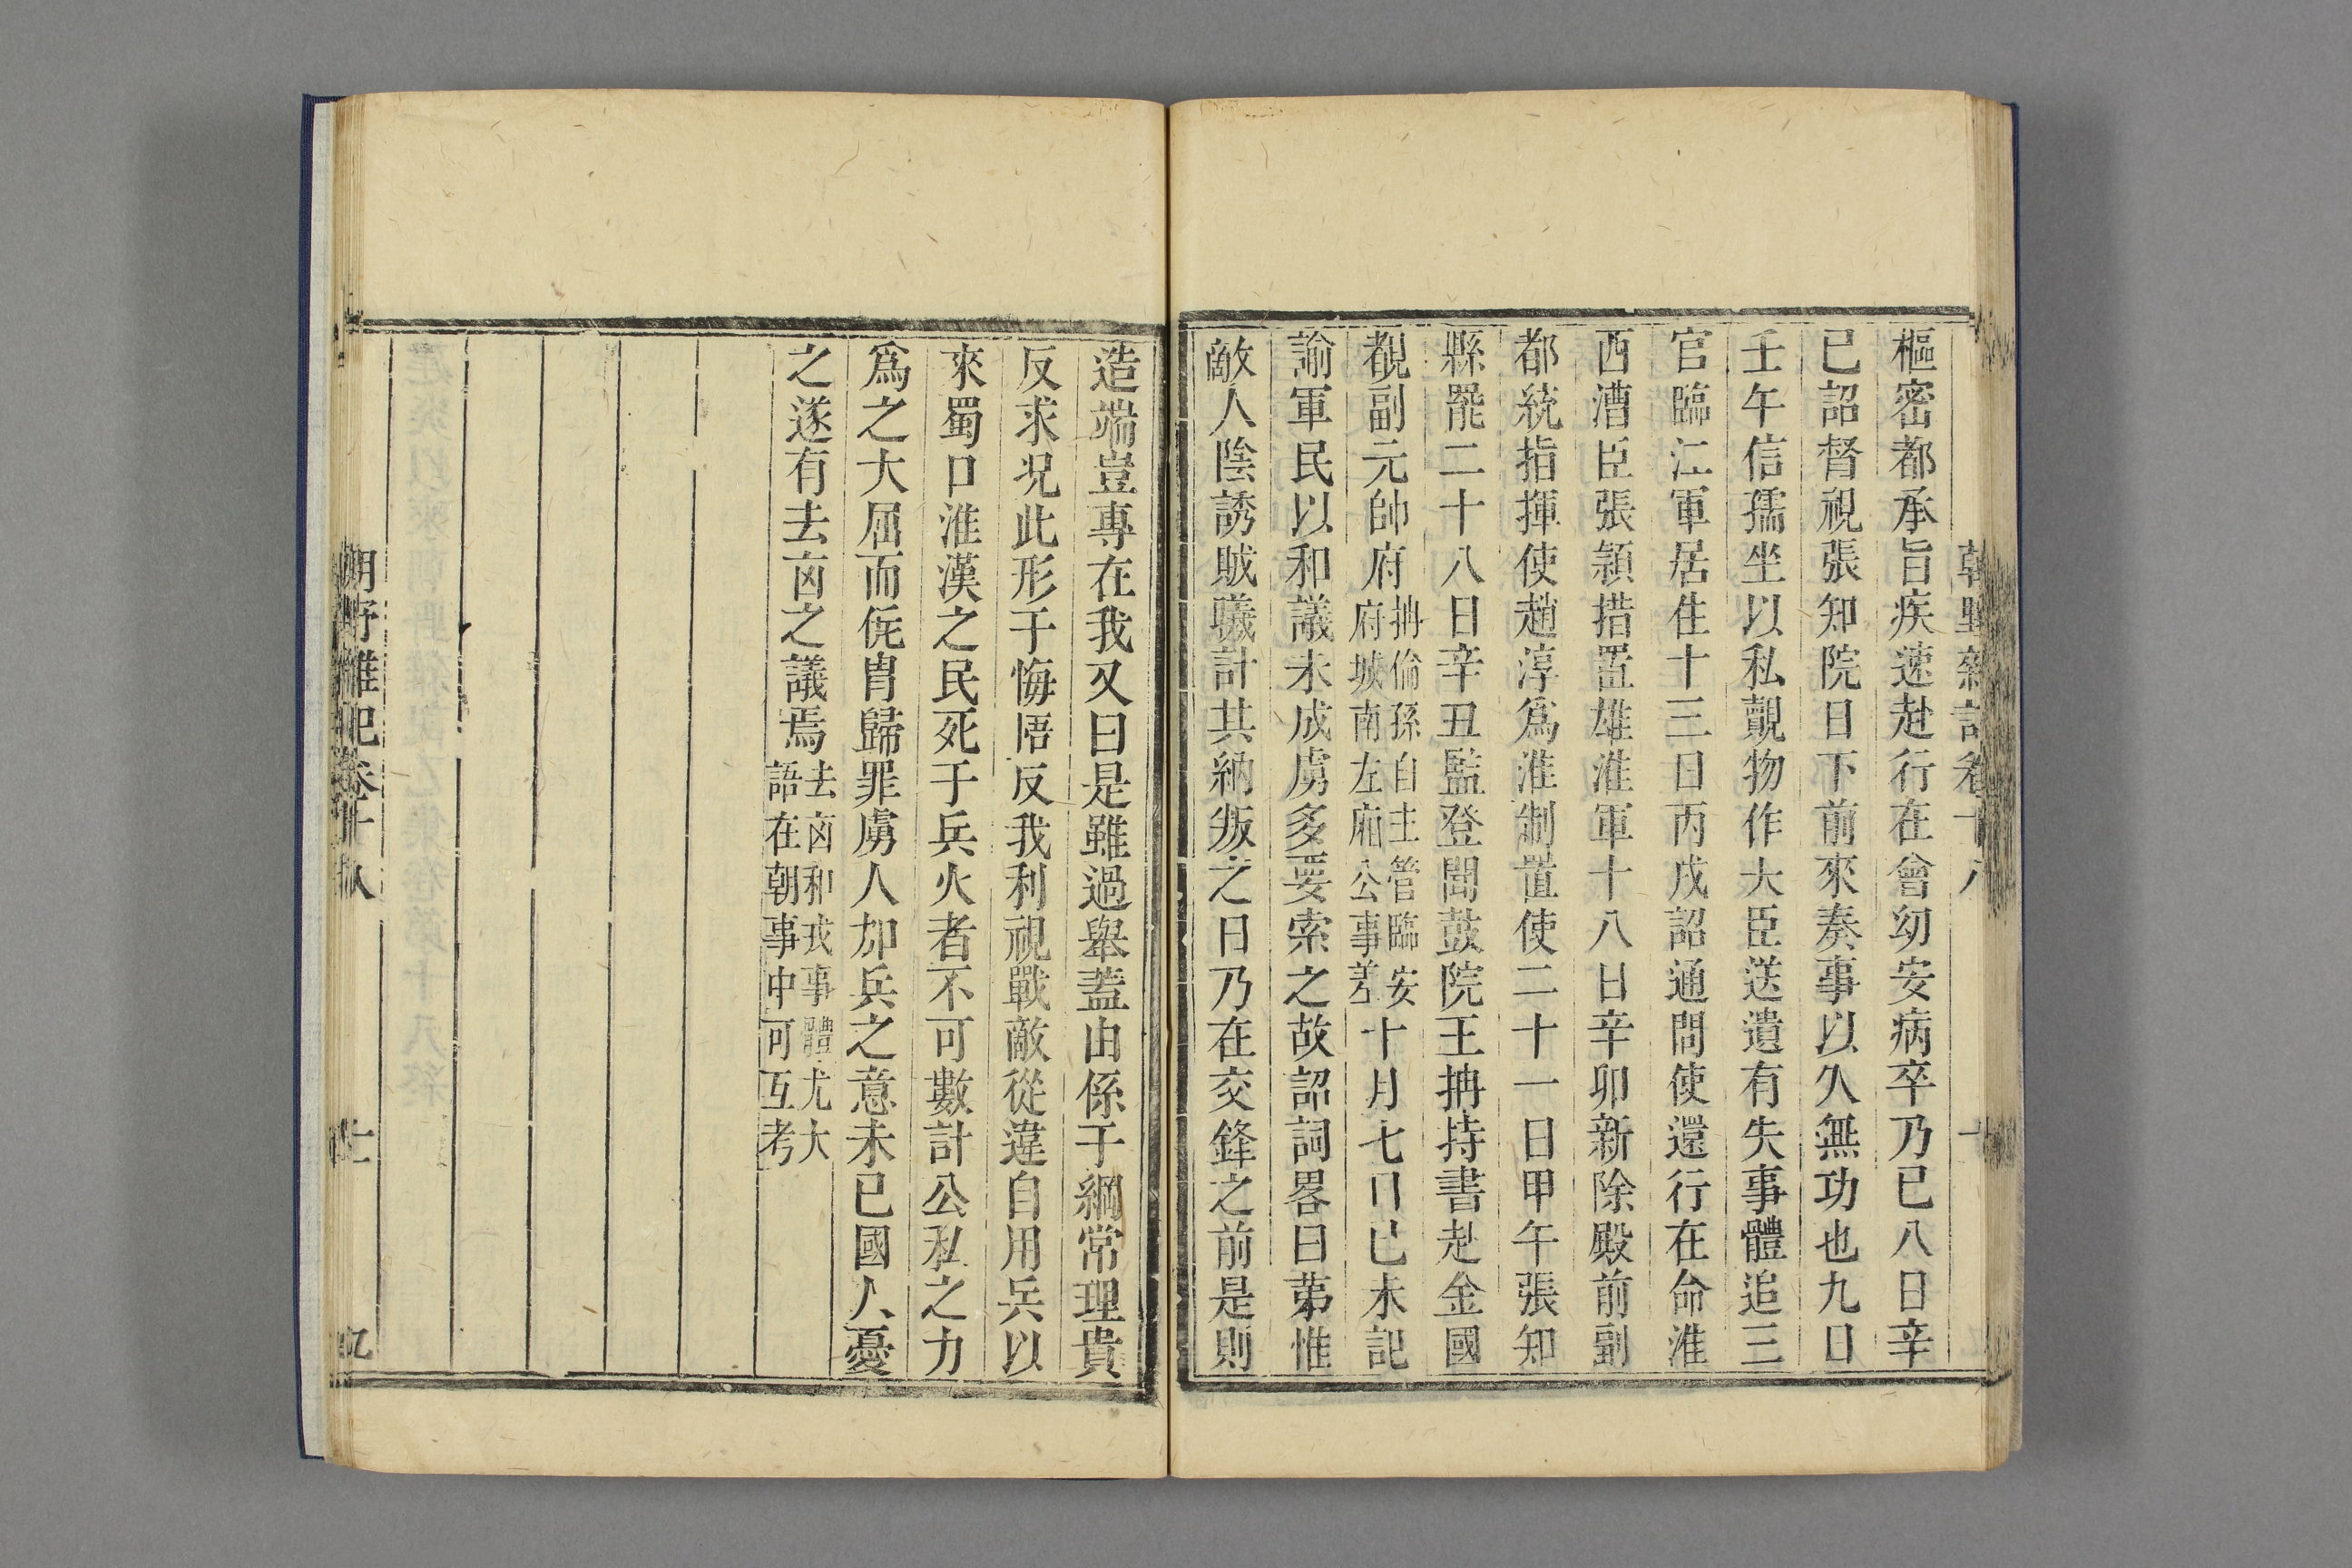 樞密都承旨疾速赴行在會幼安病卒乃已八日辛
巳詔督視張知院日下前來奏事以久無功也九日
壬午信孺坐以私覿物作大臣送遺有失事體追三
官臨江軍居住十三日丙戌詔通問使還行在命淮
西漕臣張頴措置雄淮軍十八日辛卯新除殿前副
都統指揮使趙淳爲淮制置使二十一日甲午張知
縣罷二十八日辛丑監登聞鼓院王抩持書赴金國
都副元帥府抩倫孫自主管臨安
府城南左廂公事差十月七日已未記
諭軍民以和議未成虜多要索之故詔詞畧曰苐惟
敵人陰誘賊曦計其納叛之日乃在交鋒之前是則
造端豈專在我又曰是雖過舉蓋由係于綱常理貴
反求况此形于悔悟反我利視戰敵從違自用兵以
來蜀口淮漢之民死于兵火者不可數計公私之力
爲之大屈而侂胄歸罪虜人加兵之意未已國人憂
之遂有去凶之議焉去凶和戎事體尤大
語在朝事中可互考
朝野雜記卷十八
十
九
朝野雜記卷十八
十一
九